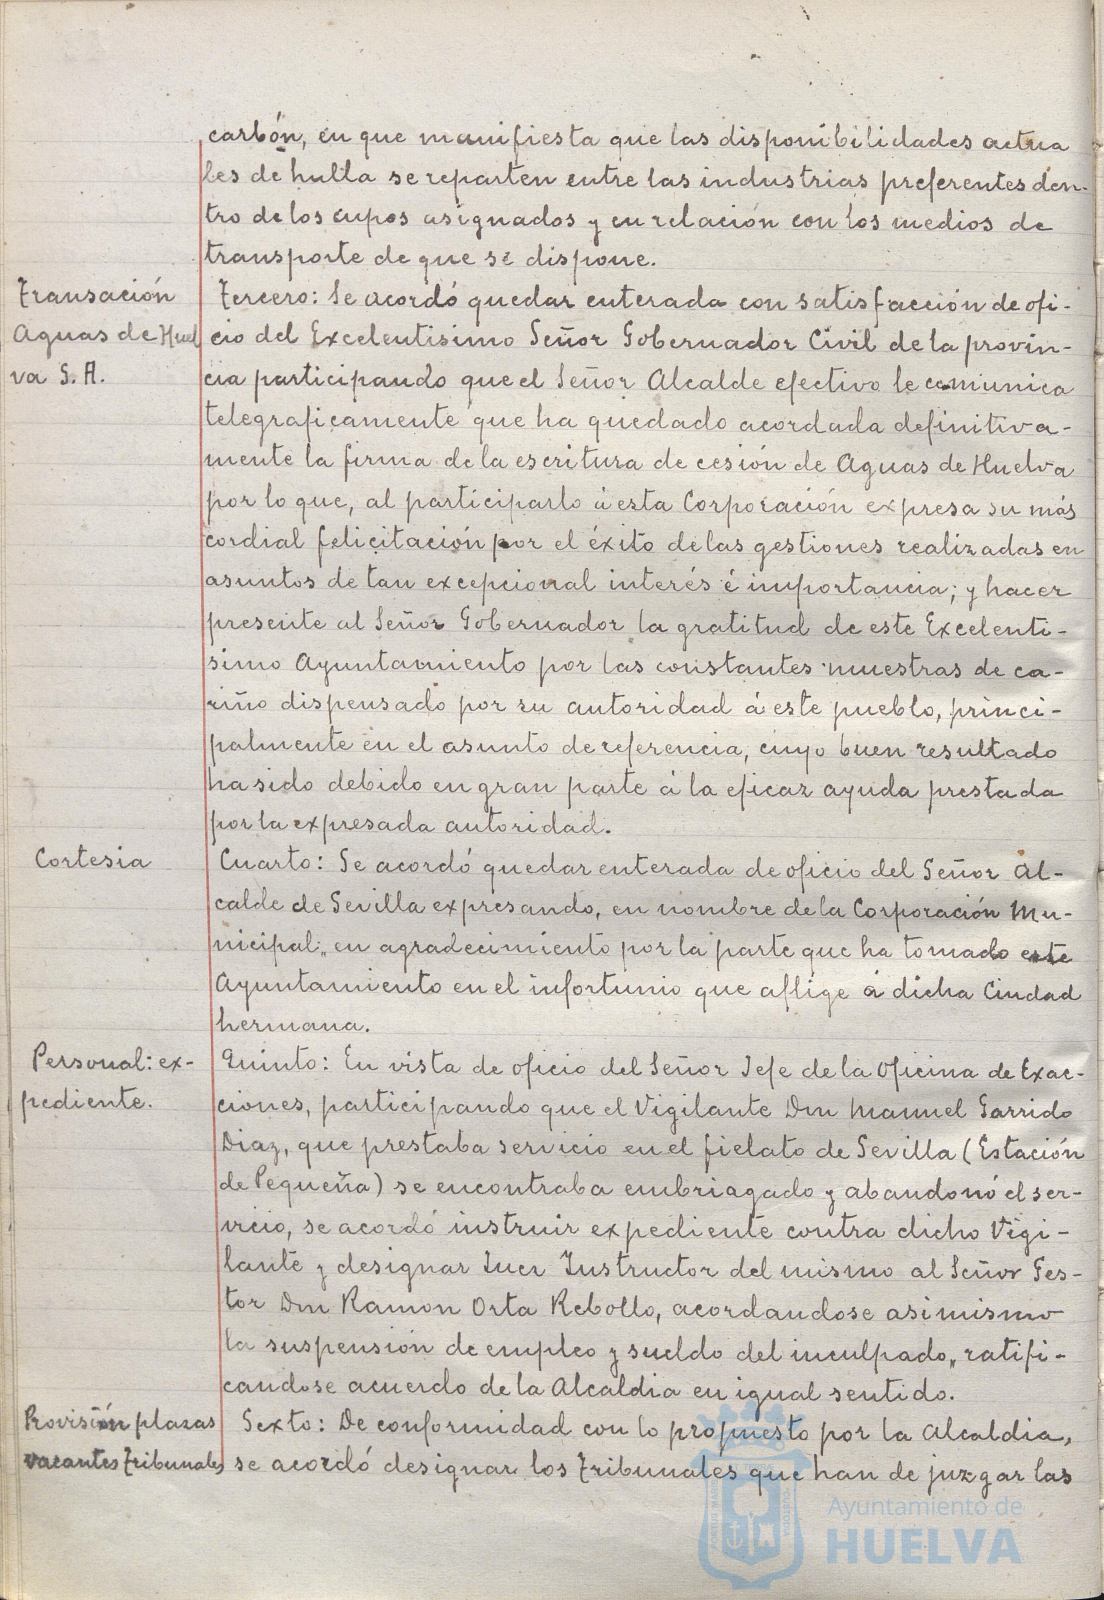 carbón, en que manifiesta que las disponibilidades actua
les de hulla se reparten entre las industrias preferentes den-
tro de los cupos asignados y en relación con los medios de
transporte de que se dispone.
Transación
Aguas de Huel
va S. A.
Tercero: Se acordó quedar enterada con satisfacción de ofi-
cio del Excelentisimo Señor Gobernador Civil de la provin-
cia participando que el Señor Alcalde efectivo le comunica
telegraficamente que ha quedado acordada definitiva-
mente la firma de la escritura de cesión de Aguas de Huelva
por lo que, al participarlo á esta Corporación expresa su más
cordial felicitación por el éxito de las gestiones realizadas en
asuntos de tan excepcional interés é importancia; y hacer
presente al Señor Gobernador la gratitud de este Excelenti-
simo Ayuntamiento por las constantes muestras de ca-
riño dispensado por su autoridad á este pueblo, princi-
palmente en el asunto de referencia, cuyo buen resultado
ha sido debido en gran parte á la eficaz ayuda prestada
por la expresada autoridad.
Cortesia
Cuarto: Se acordó quedar enterada de oficio del Señor Al-
calde de Sevilla expresando, en nombre de la Corporación Mu-
nicipal, en agradecimiento por la parte que ha tomado este
Ayuntamiento en el infortunio que aflige á dicha Ciudad
hermana.
Personal: ex-
pediente.
Quinto: En vista de oficio del Señor Jefe de la Oficina de Exac-
ciones, participando que el Vigilante Don Manuel Garrido
Diaz, que prestaba servicio en el fielato de Sevilla (Estación
de Pequeña) se encontraba embriagado y abandonó el ser-
vicio, se acordó instruir expediente contra dicho Vigi-
lante y designar Juez Instructor del mismo al Señor Ges-
tor Don Ramon Orta Rebollo, acordandose asimismo
la suspensión de empleo y sueldo del inculpado, ratifi-
candose acuerdo de la Alcaldia en igual sentido.
Provisión plazas
vacantes Tribunales
Sexto: De conformidad con lo propuesto por la Alcaldia,
se acordó designar los Tribunales que han de juzgar las
Ayuntamiento de
HUELVA